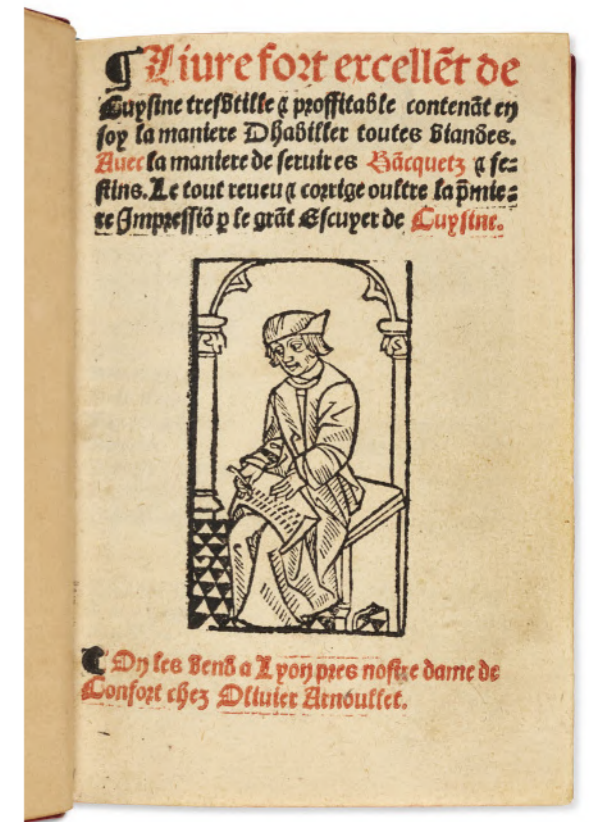 ¶ Liure fort excellẽt de
Cuysine tresvtille ⁊ proffitable contenãt en
soy la maniere Dhabiller toutes viandes.
Auec la maniere de seruir es Bãcquetz ⁊ fe⸗
stins. Le tout reueu ⁊ corrige oultre la p̃mie⸗
re Impressiõ ꝑ le grãt Escuyer de Cuysine.
¶ On les vend a Lyon pres nostre dame de
Confort chez Oliuier Arnoullet.